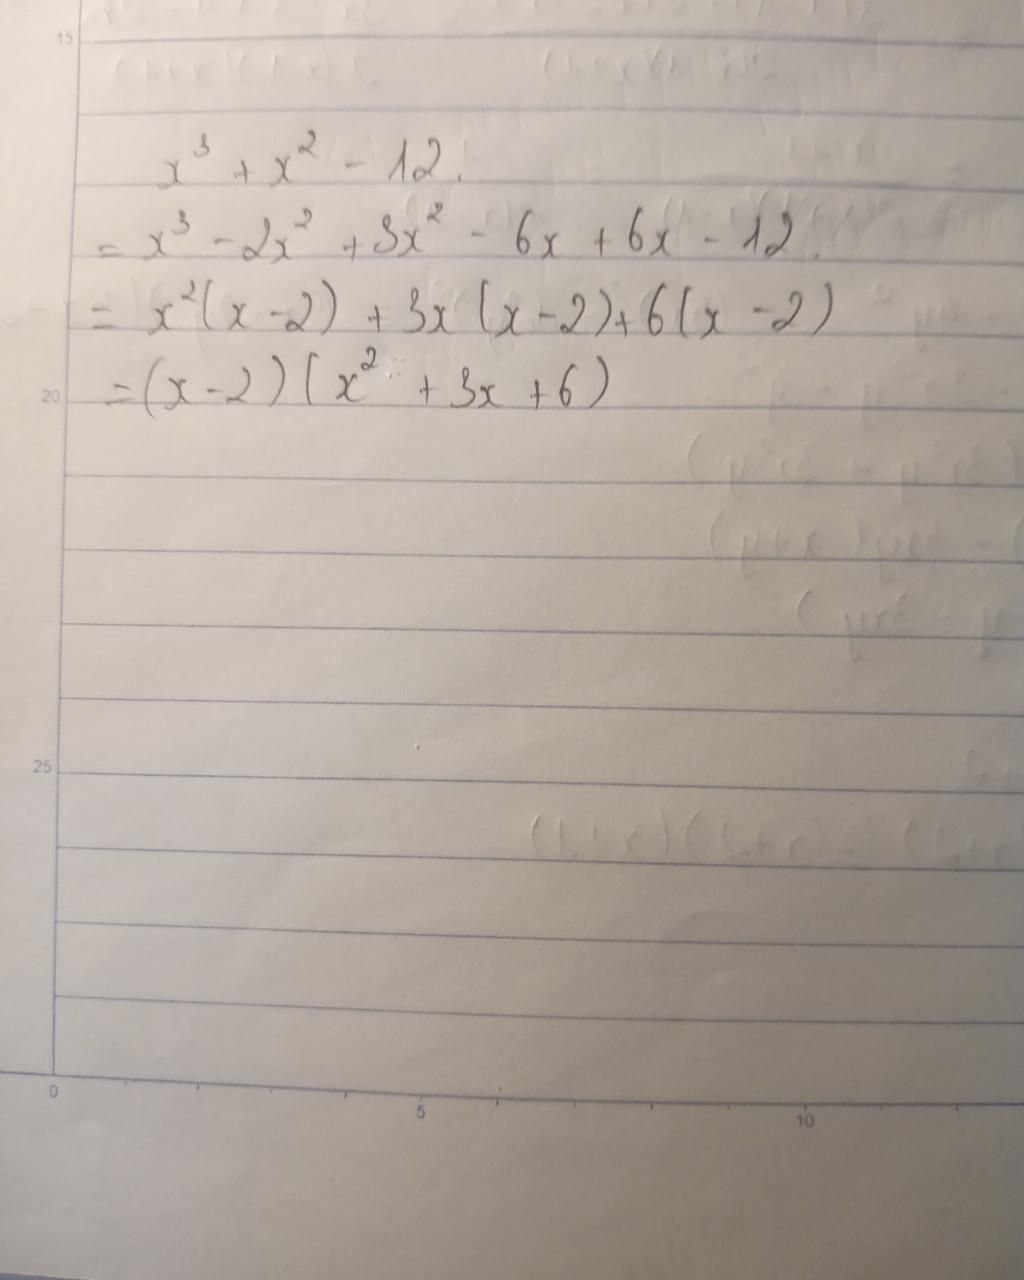 15
x³ + x² - 12.
= x³ - 2x² + 3x² - 6x + 6x - 12.
= x²(x - 2) + 3x(x - 2) + 6(x - 2)
20
= (x - 2)(x² + 3x + 6)
25
0
5
10